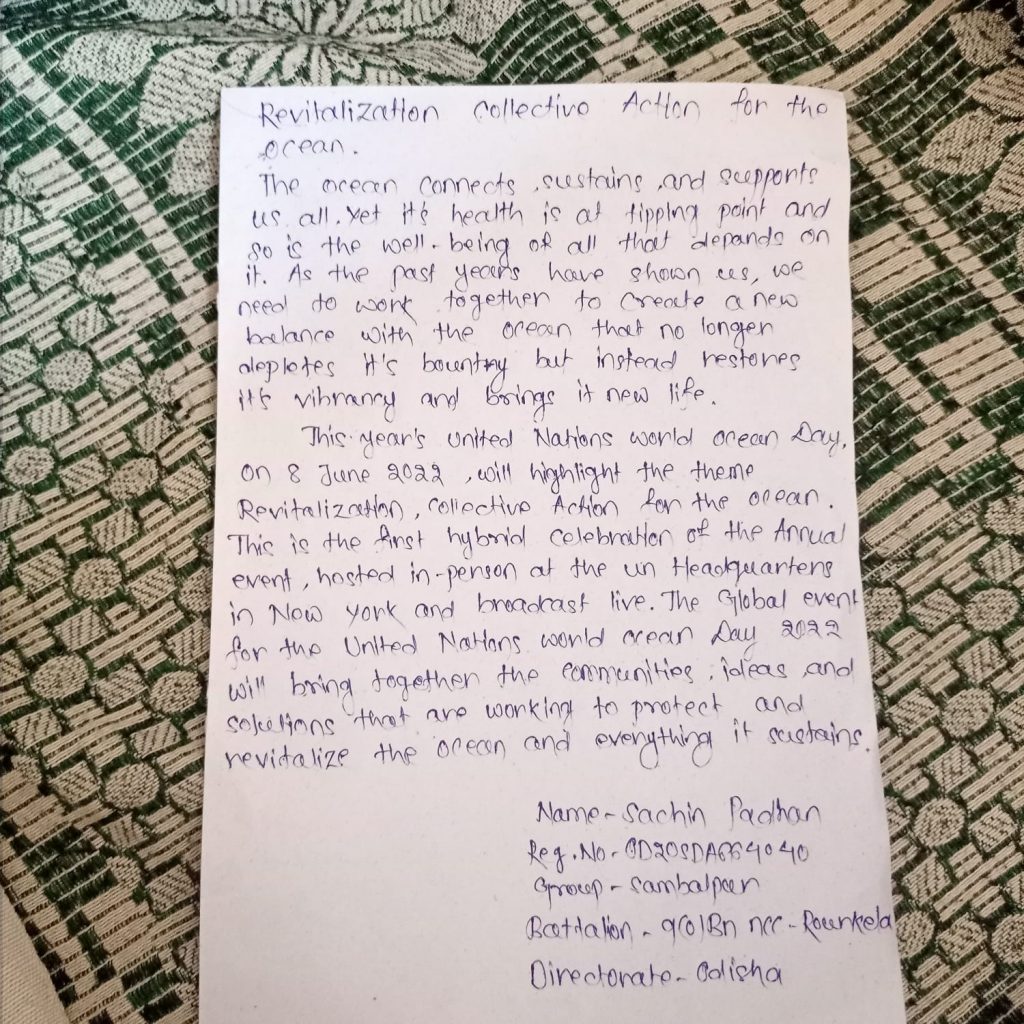 Revitalization Collective Action for the
ocean.
The ocean connects, sustains, and supports
us all. Yet it's health is at tipping point and
so is the well-being of all that depends on
it. As the past years have shown us, we
need to work together to create a new
balance with the ocean that no longer
depletes it's bountry but instead restores
it's vibrancy and brings it new life.
This year's United Nations world ocean Day,
on 8 June 2022, will highlight the theme
Revitalization, collective Action for the ocean.
This is the first hybrid celebration of the Annual
event, hosted in-person at the un Headquarters
in New york and broadcast live. The Global event
for the United Nations world ocean Day 2022
will bring together the communities, ideas and
solutions that are working to protect and
revitalize the ocean and everything it sustains.
Name - Sachin Padhan
Reg. No - OD20SDA664040
Group - Sambalpur
Battalion - 9(O)Bn ncc - Rourkela
Directorate - Odisha